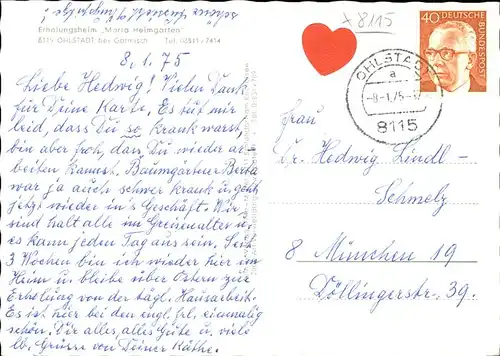 Erholungsheim „Maria Heimgarten"
8115 OHLSTADT bei Garmisch Tel. 08841-7414
+ 8115
40 DEUTSCHE BUNDESPOST
OHLSTADT
a
-8.-1.75-
8115
8.1.75
Liebe Hedwig! Vielen Dank
für Deine Karte. Es tut mir
leid, dass Du so krank warst,
bin aber froh, dass Du wieder ar-
beiten kannst. Baumgärtner Berta
war ja auch schwer krank u. geht
jetzt wieder in's Geschäft. Wir
sind halt alle im Greisenalter u.
es kann jeden Tag aus sein. Seit
3 Wochen bin ich wieder hier im
Heim u. bleibe über Ostern zur
Erholung von der tägl. Hausarbeit.
Es ist hier bei den engl. Frl. einmalig
schön. Dir alles, alles Gute u. viele
lb. Grüsse von Deiner Käthe.
Frau
Dr. Hedwig Lindl-
Schmelz
8 München 19
Döllingerstr. 39.